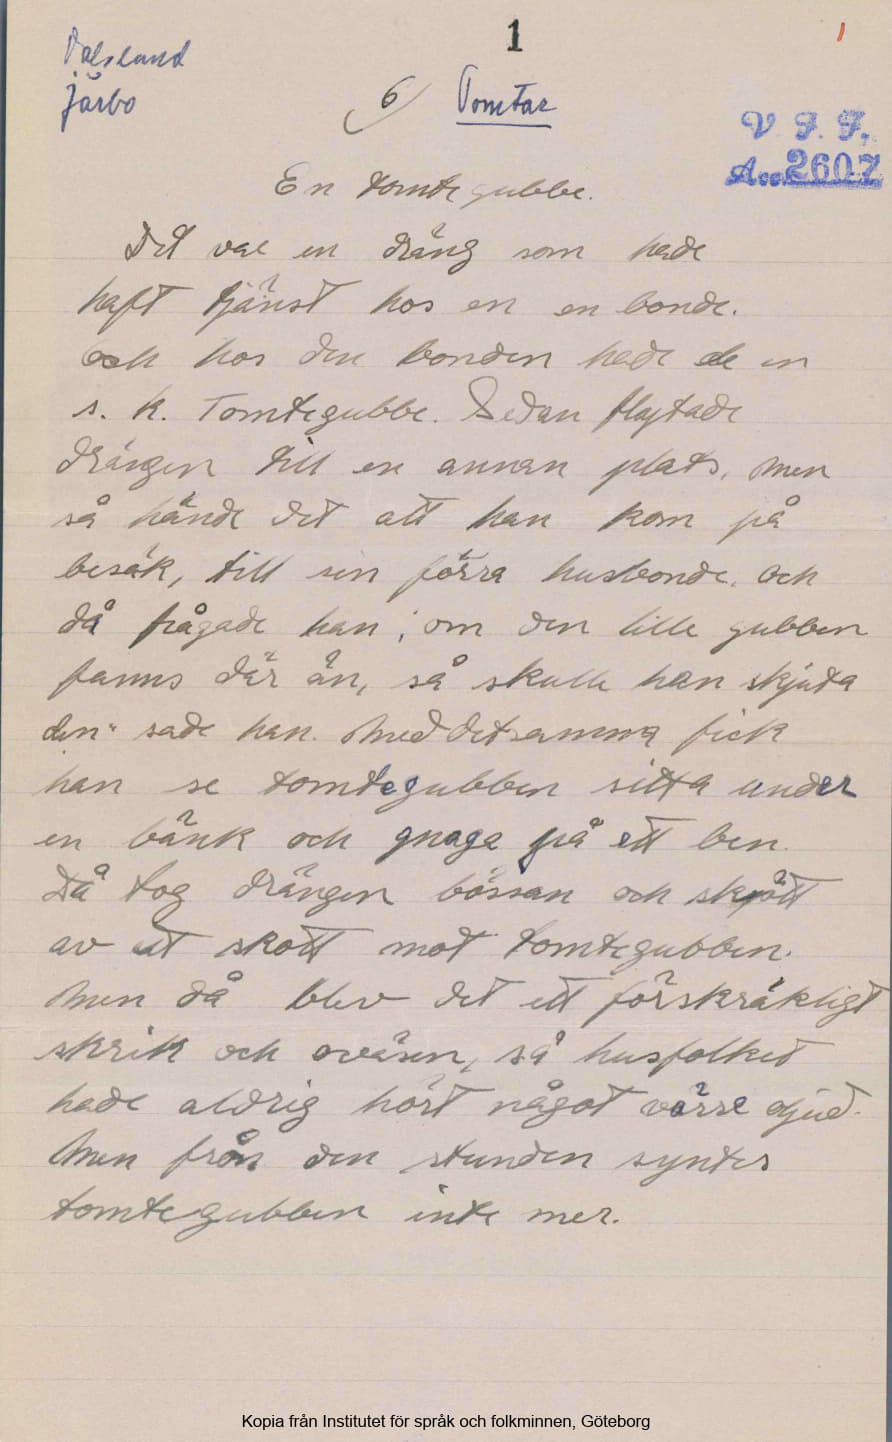 1
1
Dalsland
Järbo
6) Tomtar
V. F. F.
Acc. 2607
En tomtegubbe.
Det var en dräng som hade
haft tjänst hos en en bonde.
Och hos den bonden hade de en
s. k. Tomtegubbe. Sedan flyttade
drängen till en annan plats, men
så hände det att han kom på
besök, till sin förra husbonde. Och
då frågade han; om den lille gubben
fanns där än, så skulle han skjuta
den" sade han. Med detsamma fick
han se tomtegubben sitta under
en bänk och gnaga på ett ben.
Då tog drängen bössan och skjött
av ett skott mot tomtegubben.
Men då blev det ett förskräkligt
skrik och oväsen, så husfolket
hade aldrig hört något värre djud.
Men från den stunden syntes
tomtegubben inte mer.
Kopia från Institutet för språk och folkminnen, Göteborg